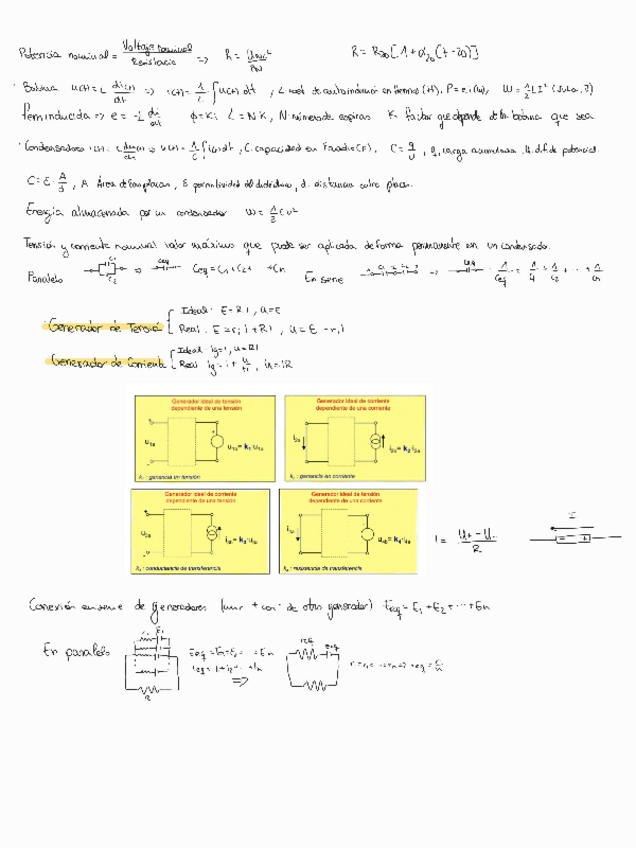 Potencia nominal = Voltaje nominal / Resistencia => R = R = R₂₀[1+α₂₀(t-20)]
Bobina u(t) = L di(t)/dt => i(t) = 1/L ∫ u(t) dt , L coef. de autoinducción en henrios (H), P = e.i (w), W = 1/2 L I²
Fem inducida => e = -L di/dt φ = Ki L = NK, N: número de espiras K: factor que depende de la bobina que sea
Condensadores => u(t) = 1/C ∫ i(t) dt, C: capacidad en Faradio (F), C = q/u , q: carga acumulada, u: d.f. de potencial.
C = ε · A/d , A: Área de las placas, ε permitividad del dieléctrico, d: distancia entre placas.
Energía almacenada por un condensador W = 1/2 C u²
Tensión y corriente nominal: valor máximo que puede ser aplicada de forma permanente en un condensador.
Paralelo C1 C2 => Ceq Ceq = C1 + C2 + +Cn En serie C1 C2 C3 -> Ceq 1/Ceq = 1/C1 + 1/C2 + ... + 1/Cn
Generador de Tensión Ideal: E = RI , u = E
Real: E = ri i + RI , u = E - ri i
Generador de Corriente Ideal: ig = i, u = RI
Real: ig = i + u/ri , u = iR
Generador ideal de tensión
dependiente de una tensión
u₁ₐ
u₁ₐ= k₁·u₁ₐ
k₁ : ganancia en tensión
Generador ideal de corriente
dependiente de una corriente
i₂ₐ
i₂ₐ= k₂·i₂ₐ
k₂ : ganancia en corriente
Generador ideal de corriente
dependiente de una tensión
k₃ : conductancia de transferencia
Generador ideal de tensión
dependiente de una corriente
k₄ : resistencia de transferencia
I = (U+ - U-)/R I
Conexión en serie de generadores (unir + con - de otro generador) Eeq = E1 + E2 + ... + En
En paralelo E1 R Eeq = E1 = E2 = = En
=>